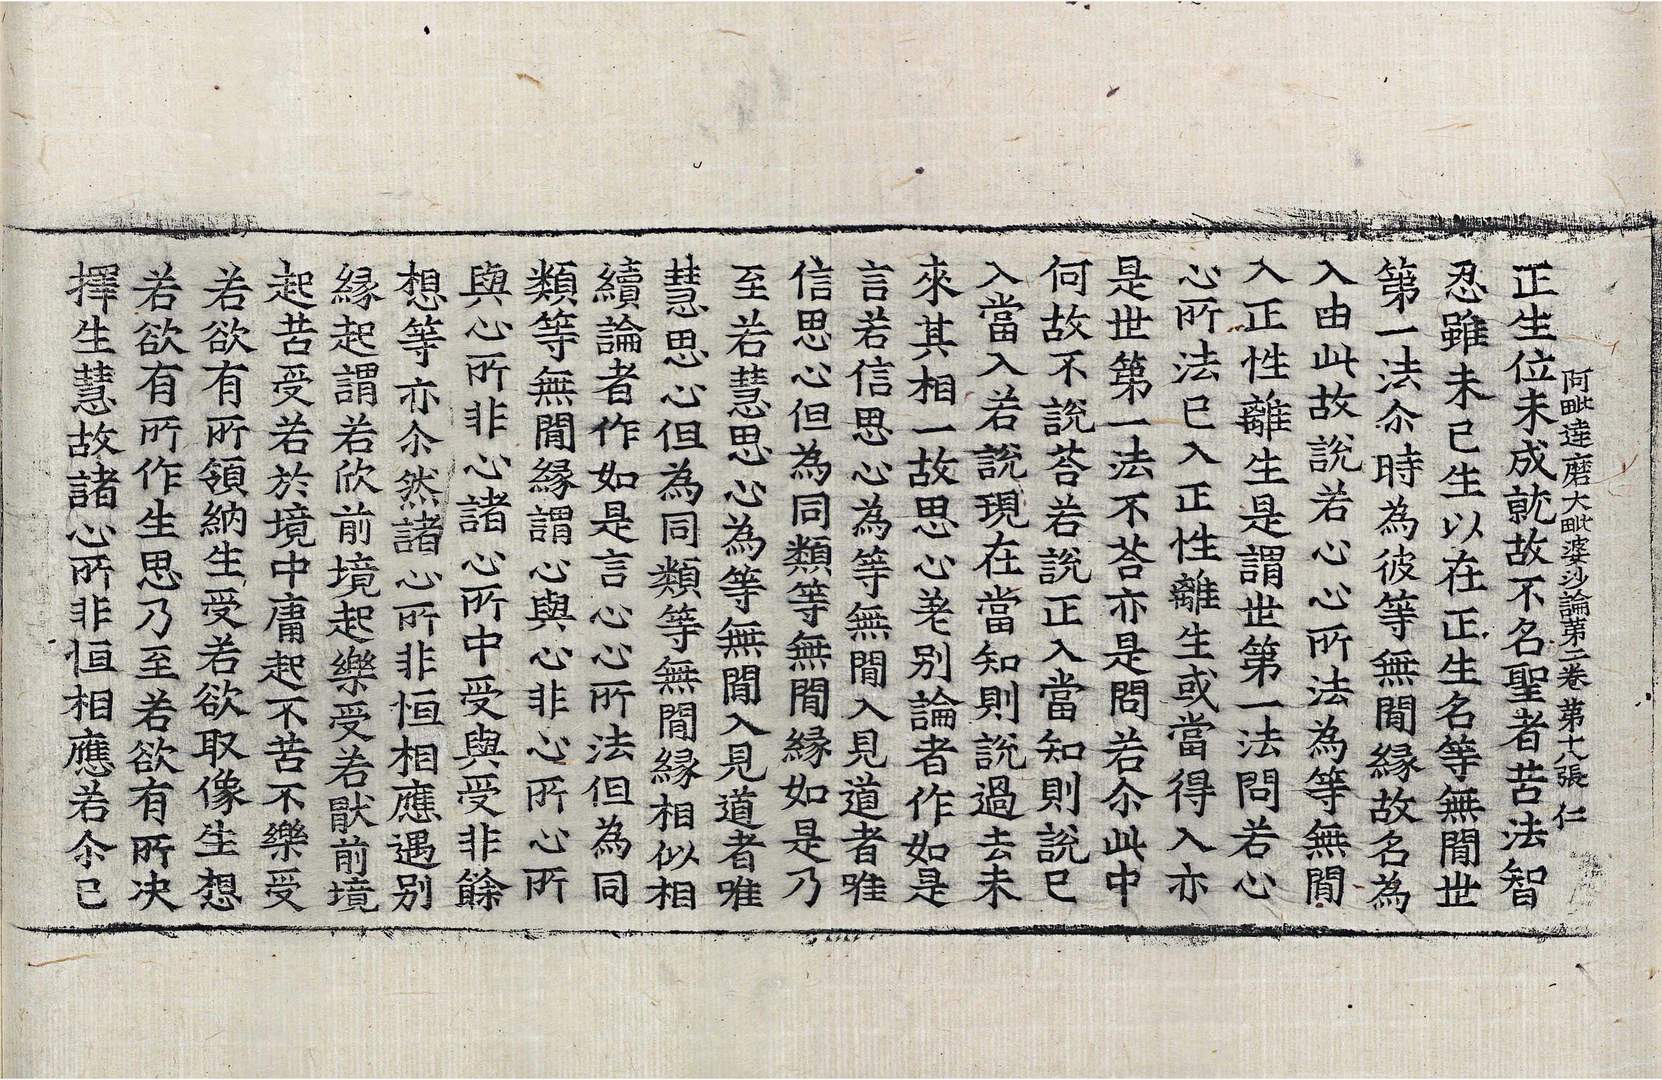 阿毗達磨大毗婆沙論第二卷 第十八張 仁
正生位未成就故不名聖者苦法智
忍雖未已生以在正生名等無閒世
第一法尒時為彼等無閒緣故名為
入由此故說若心心所法為等無閒
入正性離生是謂世第一法問若心
心所法已入正性離生或當得入亦
是世第一法不荅亦是問若尒此中
何故不說荅若說正入當知則說已
入當入若說現在當知則說過去未
來其相一故思心差別論者作如是
言若信思心為等無閒入見道者唯
信思心但為同類等無閒緣如是乃
至若慧思心為等無閒入見道者唯
慧思心但為同類等無閒緣相似相
續論者作如是言心心所法但為同
類等無閒緣謂心與心非心所心所
與心所非心諸心所中受與受非餘
想等亦尒然諸心所非恒相應遇別
緣起謂若欣前境起樂受若猒前境
起苦受若於境中庸起不苦不樂受
若欲有所領納生受若欲取像生想
若欲有所作生思乃至若欲有所决
擇生慧故諸心所非恒相應若尒已